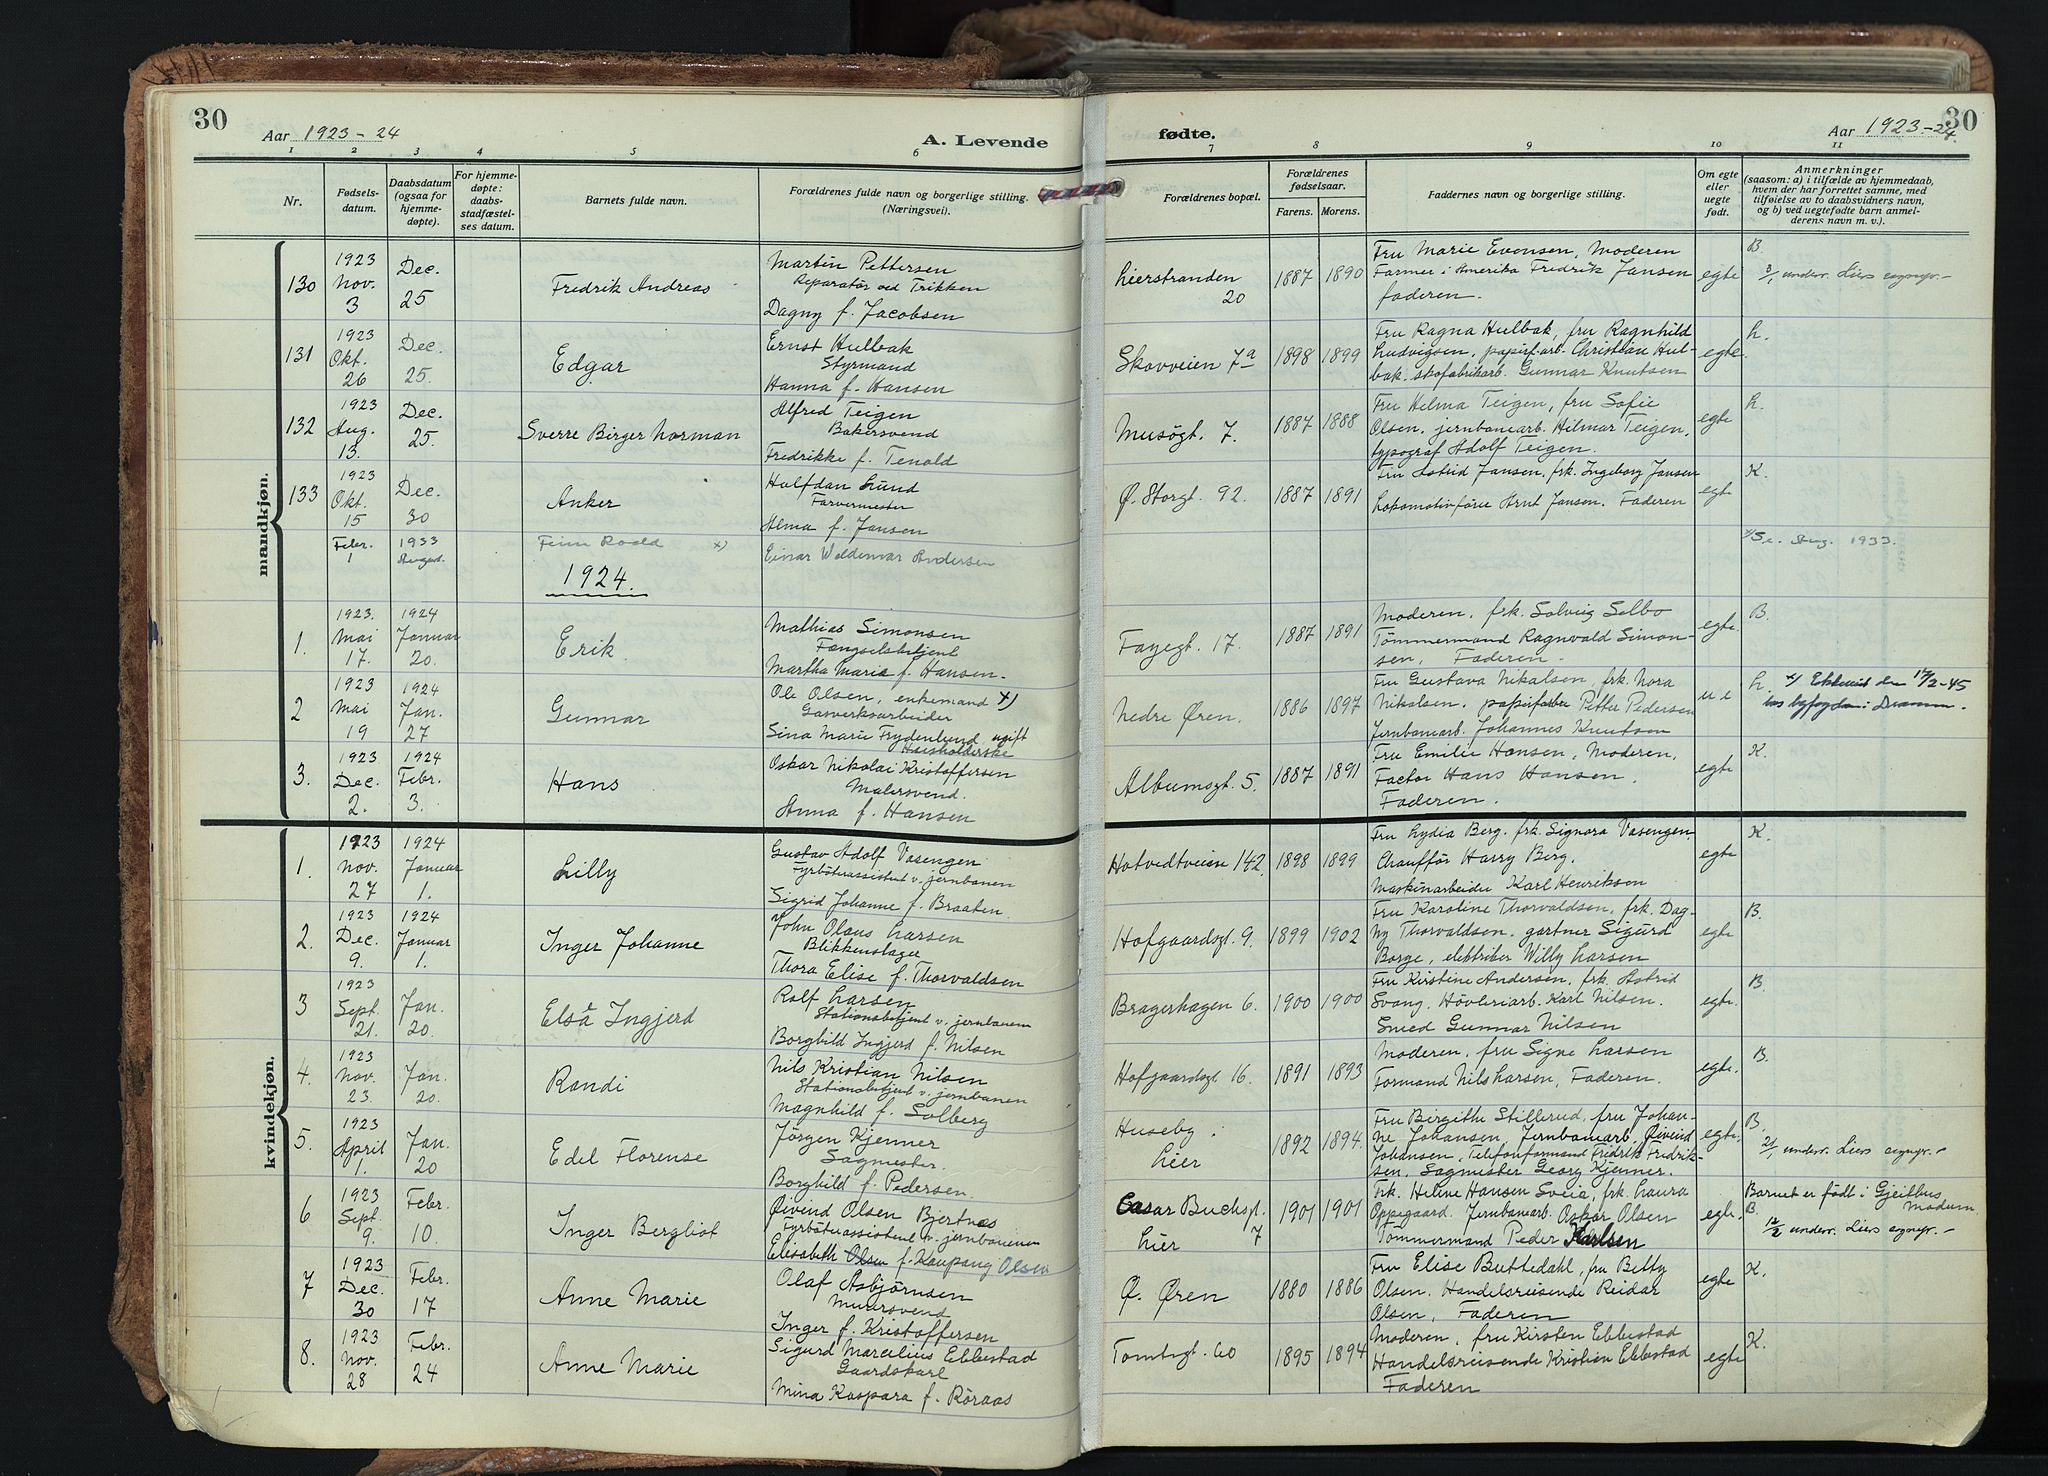 30
Aar 1923-24
A. Levende
fødte.
Aar 1923-24.
30
1 2 3 4 5 6 7 8 9 10 11
Nr.
Fødsels-
datum.
Daabsdatum
(ogsaa for
hjemme-
døpte).
For hjemme-
døpte:
daabs-
stadfæstel-
ses datum.
Barnets fulde navn.
Forældrenes fulde navn og borgerlige stilling.
(Næringsvei).
Forældrenes bopæl.
Forældrenes
fødselsaar.
Farens. Morens.
Faddernes navn og borgerlige stilling.
Om egte
eller
uegte
født.
Anmerkninger
(saasom: a) i tilfælde av hjemmedaab,
hvem der har forrettet samme, med
tilføielse av to daabsvidners navn,
og b) ved uegtefødte barn anmel-
derens navn m. v.).
mandkjøn.
130
1923
Nov.
3
Dec.
25
Fredrik Andreas
Martin Pettersen
Reparatør ved Trikken
Dagny f. Jacobsen
Lierstranden
20
1887 1890
Fru Marie Evensen, Moderen
Farmer i Amerika Fredrik Jansen
faderen.
egte
B.
3/1 underr. Liers sogngr.-
131
1923
Okt.
26
Dec.
25.
Edgar
Ernst Hulbak
Styrmand
Hanna f. Hansen
Skovveien 7a
1898 1899
Fru Ragna Hulbak, fru Ragnhild
Ludvigsen, papirf.arb. Christian Hul-
bak. skofabrikarb. Gunnar Knutsen
egte.
L.
132
1923
Aug.
13.
Dec.
25.
Sverre Birger Norman
Alfred Teigen
Bakersvend
Fredrikke f. Tenold
Musøgt. 7.
1887 1888
Fru Helma Teigen, fru Sofie
Olsen, jernbanearb. Hilmar Teigen,
typograf Adolf Teigen.
egte
L.
133
1923
Okt.
15
Dec.
30
Anker
Halfdan Lund
Farvermester
Alma f. Jansen
Ø. Storgt. 92.
1887 1891
Fru Astrid Jansen, frk. Ingeborg Jansen
Lokomotivfører Arnt Jansen. Faderen
egte
K.
Febr.
1
1933
August.
Finn Roald x)
Einar Waldemar Andersen
x) Se Aug. 1933.
1924.
1.
1923.
Mai
17.
1924
Januar
20.
Erik.
Mathias Simonsen
Fængselsbetjent
Martha Marie f. Hansen.
Fayegt. 17.
1887 1891
Moderen, frk. Solveig Selbo
Tømmermand Ragnvald Simon-
sen, Faderen.
egte.
B.
2
1923
Mai
19
1924
Jan.
27
Gunnar
Ole Olsen, enkemand x)
Gasverksarbeider
Sina Marie Frydenlund ugift
Husholderske
Nedre Øren.
1886 1897
Fru Gustava Nikolsen, frk. Nora
Nikolsen, papirfarber Petter Pedersen
Jernbanearb. Johannes Knutsen
u e
L.
x) Ektevist den 17/2-45
hos byfogden i Dramm.
3.
1923
Dec.
2.
1924
Febr.
3.
Hans
Oskar Nikolai Kristoffersen
Malersvend.
Anna f. Hansen
Albumsgt. 5.
1887 1891
Fru Emilie Hansen, Moderen,
Factor Hans Hansen.
Faderen.
egte
K.
kvindekjøn.
1.
1923
Nov.
27
1924
Januar
1.
Lilly
Gustav Adolf Vasengen
Fyrbøterassistent v. jernbanen
Sigrid Johanne f. Braaten.
Hotvedtveien 142,
1898 1899
Fru Lydia Berg. frk. Signora Vasengen
Chauffør Harry Berg.
Maskinarbeider Karl Henriksen
egte
K.
2.
1923
Dec.
9.
1924
Januar
1.
Inger Johanne
John Olaus Larsen
Blikkenslager
Thora Elise f. Thorvaldsen
Hofgaardsgt. 9.
1899 1902
Fru Karoline Thorvaldsen, frk. Dag-
ny Thorvaldsen. gartner Sigurd
Borge, elektriker Willy Larsen
egte
B.
3
1923
Sept.
21.
Jan.
20.
Elsa Ingjerd
Rolf Larsen
Stationsbetjent v. jernbanen
Borghild Ingjerd f. Nilsen
Bragerhagen 6.
1900 1900
Fru Kirstine Andersen, frk. Astrid
Svang. Høvleriarb. Karl Nilsen.
Smed Gunnar Nilsen
egte.
B.
4.
1923
Nov.
23
Jan.
20.
Randi
Nils Kristian Nilsen
Stationsbetjent v. jernbanen
Magnhild f. Solberg
Hofgaardsgt 16.
1891 1893
Moderen, fru Signe Larsen
Formand Nils Larsen, Faderen.
egte.
B.
5.
1923
April
1.
Jan.
20
Edel Florense
Jørgen Kjenner
Sagmester.
Borghild f. Pedersen.
Huseby i
Lier
1892 1894.
Fru Birgithe Stillerud, fru Johan-
ne Johansen, Jernbanearb. Øivind
Johansen, Telefonformand Fredrik Fredrik-
sen, Sagmester Georg Kjenner.
egte.
B.
21/1 underr. Liers sogngr.-
6
1923
Sept.
9.
Febr.
10.
Inger Bergliot
Øivind Olsen Bjertnes
Fyrbøterassistent v. jernbanen
Elisabeth Olsen f. Kaupang Olsen
Cæsar Buchsgt.
Lier 7
1901 1901
Frk. Helene Hansen Sveia, frk. Laura
Oppegaard. Jernbanearb. Oskar Olsen
Tømmermand Peder Karlsen
egte.
Barnet er født i Gjeithus
Modum.
B.
12/2 underr. Liers sogngr.-
7
1923
Dec.
30
Febr.
17
Anne Marie
Olaf Asbjørnsen
Murersvend
Inger f. Kristoffersen
Ø. Øren
1880 1886
Fru Elise Buttedahl, fru Betty
Olsen. Handelsreisende Reidar
Olsen, Faderen
egte
K.
8.
1923
Nov.
28
Febr.
24
Anne Marie
Sigurd Marcelius Ebbestad
Gaardskarl
Mina Kaspara f. Røraas
Tomtegt. 60
1895 1894
Moderen, fru Kirsten Ebbestad
Handelsreisende Kristian Ebbestad
Faderen
egte
K.